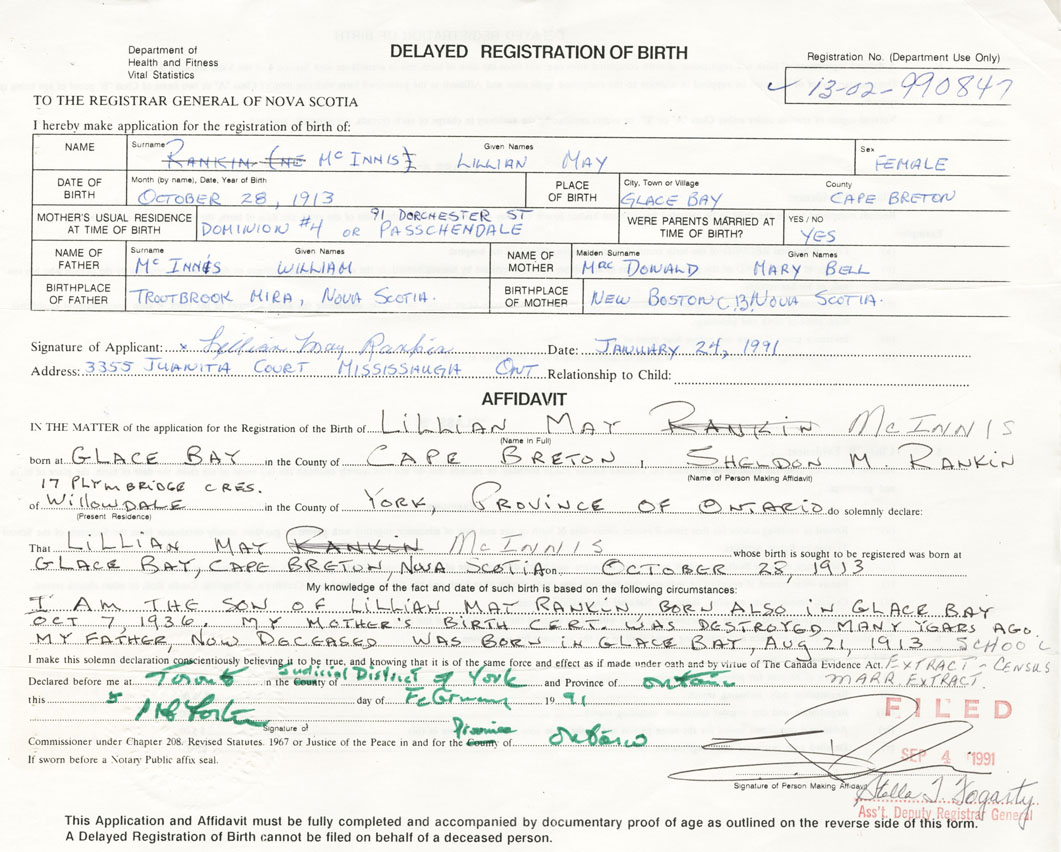 Department of
Health and Fitness
Vital Statistics
DELAYED REGISTRATION OF BIRTH
Registration No. (Department Use Only)
✓ 13-02-990847
TO THE REGISTRAR GENERAL OF NOVA SCOTIA
I hereby make application for the registration of birth of:
NAME Surname RANKIN (NE McINNIS) Given Names LILLIAN MAY Sex FEMALE
DATE OF BIRTH Month (by name), Date, Year of Birth OCTOBER 28, 1913 PLACE OF BIRTH City, Town or Village GLACE BAY County CAPE BRETON
MOTHER'S USUAL RESIDENCE AT TIME OF BIRTH 91 DORCHESTER ST DOMINION #4 OR PASSCHENDALE WERE PARENTS MARRIED AT TIME OF BIRTH? YES / NO YES
NAME OF FATHER Surname McINNIS Given Names WILLIAM NAME OF MOTHER Maiden Surname MacDONALD Given Names MARY BELL
BIRTHPLACE OF FATHER TROUTBROOK MIRA, NOVA SCOTIA. BIRTHPLACE OF MOTHER NEW BOSTON C.B, NOVA SCOTIA.
Signature of Applicant: x Lillian May Rankin Date: JANUARY 24, 1991
Address: 3355 JUANITA COURT MISSISSAUGH ONT Relationship to Child:
AFFIDAVIT
IN THE MATTER of the application for the Registration of the Birth of LILLIAN MAY RANKIN McINNIS
(Name in Full)
born at GLACE BAY in the County of CAPE BRETON I, SHELDON M. RANKIN
(Name of Person Making Affidavit)
17 PLYMBRIDGE CRES.
of WILLOWDALE in the County of YORK, PROVINCE OF ONTARIO do solemnly declare:
(Present Residence)
That LILLIAN MAY RANKIN McINNIS whose birth is sought to be registered was born at
GLACE BAY, CAPE BRETON, NOVA SCOTIA on OCTOBER 28, 1913
My knowledge of the fact and date of such birth is based on the following circumstances:
I AM THE SON OF LILLIAN MAY RANKIN, BORN ALSO IN GLACE BAY
OCT 7, 1936. MY MOTHER'S BIRTH CERT. WAS DESTROYED MANY YEARS AGO.
MY FATHER, NOW DECEASED WAS BORN IN GLACE BAY, AUG 21, 1913 SCHOOL
I make this solemn declaration conscientiously believing it to be true, and knowing that it is of the same force and effect as if made under oath and by virtue of The Canada Evidence Act. EXTRACT - CENSUS
MARR EXTRACT
Declared before me at Toronto in the County of Judicial District of York and Province of Ontario
this 5 day of February 1991
FILED
Signature of
Commissioner under Chapter 208. Revised Statutes. 1967 or Justice of the Peace in and for the County of Province Ontario
SEP 4 1991
If sworn before a Notary Public affix seal.
Signature of Person Making Affidavit
Stella T Fogarty
Ass't. Deputy Registrar General
This Application and Affidavit must be fully completed and accompanied by documentary proof of age as outlined on the reverse side of this form.
A Delayed Registration of Birth cannot be filed on behalf of a deceased person.